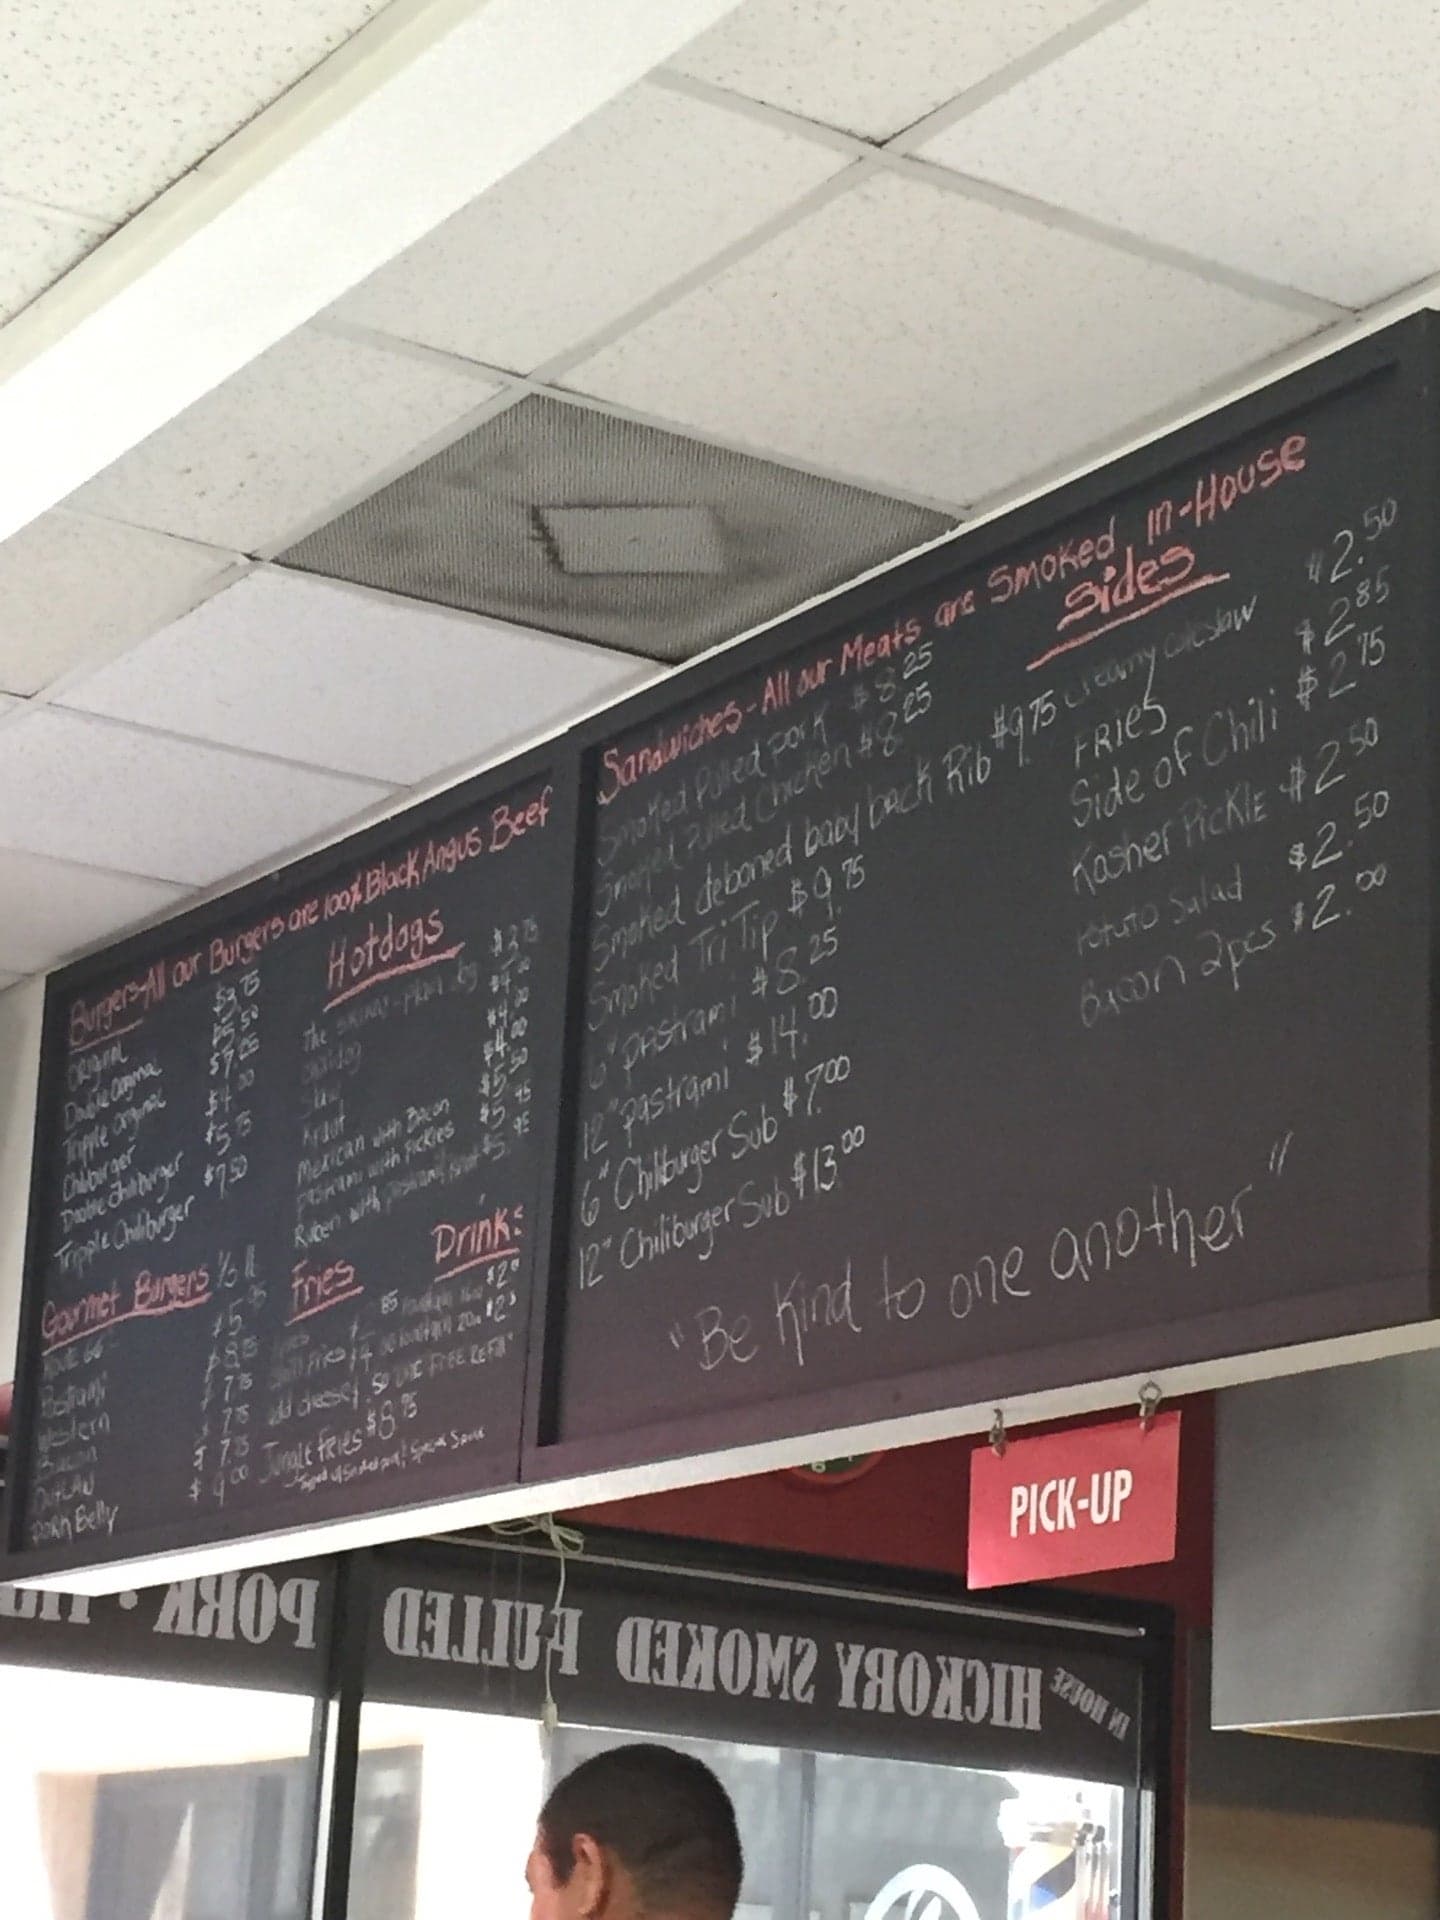 Burgers-All our Burgers are 100% Black Angus Beef
Original $3.75
Double Original $5.50
Tripple Original $7.25
Chiliburger $4.00
Double Chiliburger $5.75
Tripple Chiliburger $7.50
Gourmet Burgers
Route 66 $5.95
Pastrami $8.75
Western $7.75
Bacon $7.75
Outlaw $7.75
Pork Belly $9.00
Hotdogs
The $3.75
$4.00
Slaw $4.00
Kraut $4.00
Mexican with Bacon $5.50
Pastrami with Pickles $5.95
Ruben with pastrami/kraut $5.95
Fries
Fries 85
Chili Fries $4.00
add cheese .50
Jungle Fries $8.75
Special Sauce
Drinks
Fountain
Fountain
ONE FREE REFill
Sandwiches-All our Meats are Smoked in-House
Smoked Pulled Pork $8.25
Smoked Pulled Chicken $8.25
Smoked deboned baby back Rib $9.75
Smoked Tri Tip $9.75
6" pastrami $8.25
12" pastrami $14.00
6" Chiliburger Sub $7.00
12" Chiliburger Sub $13.00
Sides
Creamy Coleslaw $2.50
FRIES $2.85
Side of Chili $2.75
Kosher PicKlE $2.50
Potato Salad $2.50
Bacon 2pcs $2.00
"Be Kind to one another"
PICK-UP
IN HOUSE HICKORY SMOKED PULLED PORK •